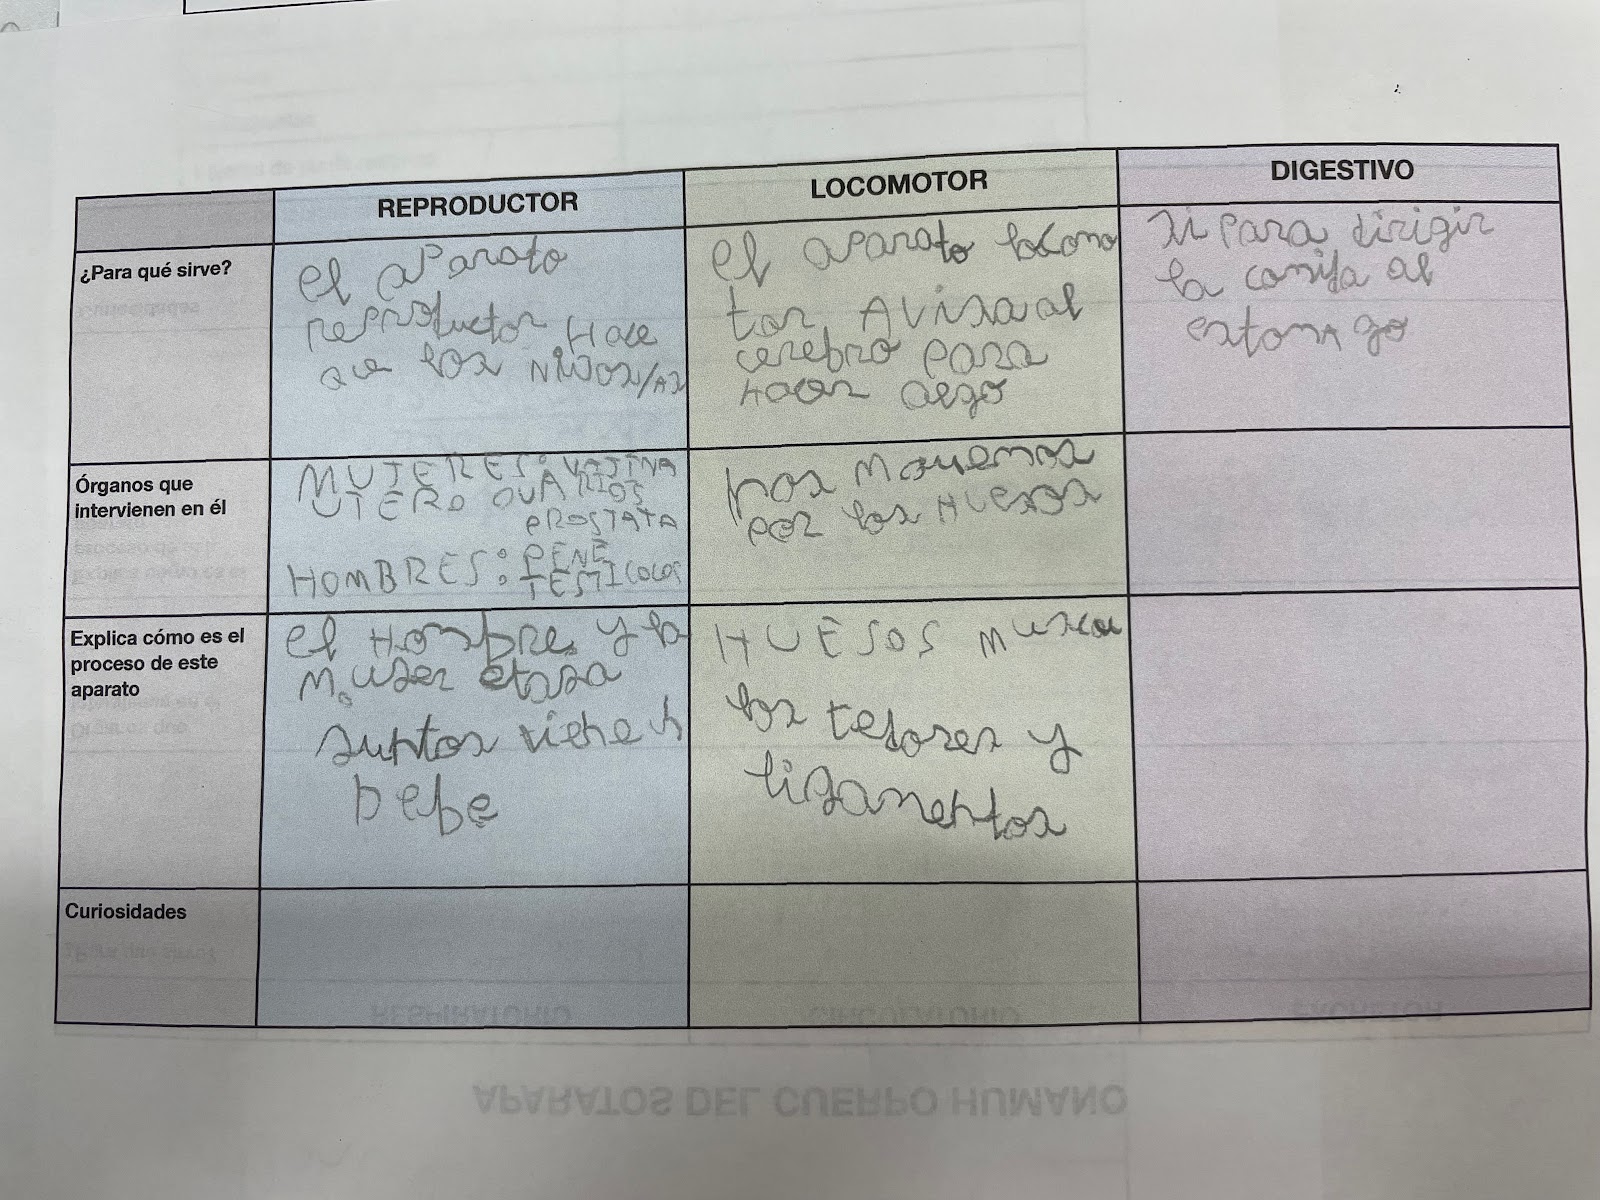 REPRODUCTOR
LOCOMOTOR
DIGESTIVO
¿Para qué sirve?
el aParato
reproductor Hace
que los NIÑOS/AS
el aParato locomo
tor AVisa al
cerebro para
Hacer algo
para dirigir
la comida al
estomago
Órganos que
intervienen en él
MUJERES: VAJINA
UTERO OVARIOS
PROSTATA
HOMBRES: PENE
TESTICOLOS
nos Movemos
por los HUesos
Explica cómo es el
proceso de este
aparato
el Hombre y la
Mujer
juntos viene
bebe
HUESOS Muscu
los
ligamentos
Curiosidades
RESPIRATORIO
CIRCULATORIO
EXCRETOR
APARATOS DEL CUERPO HUMANO